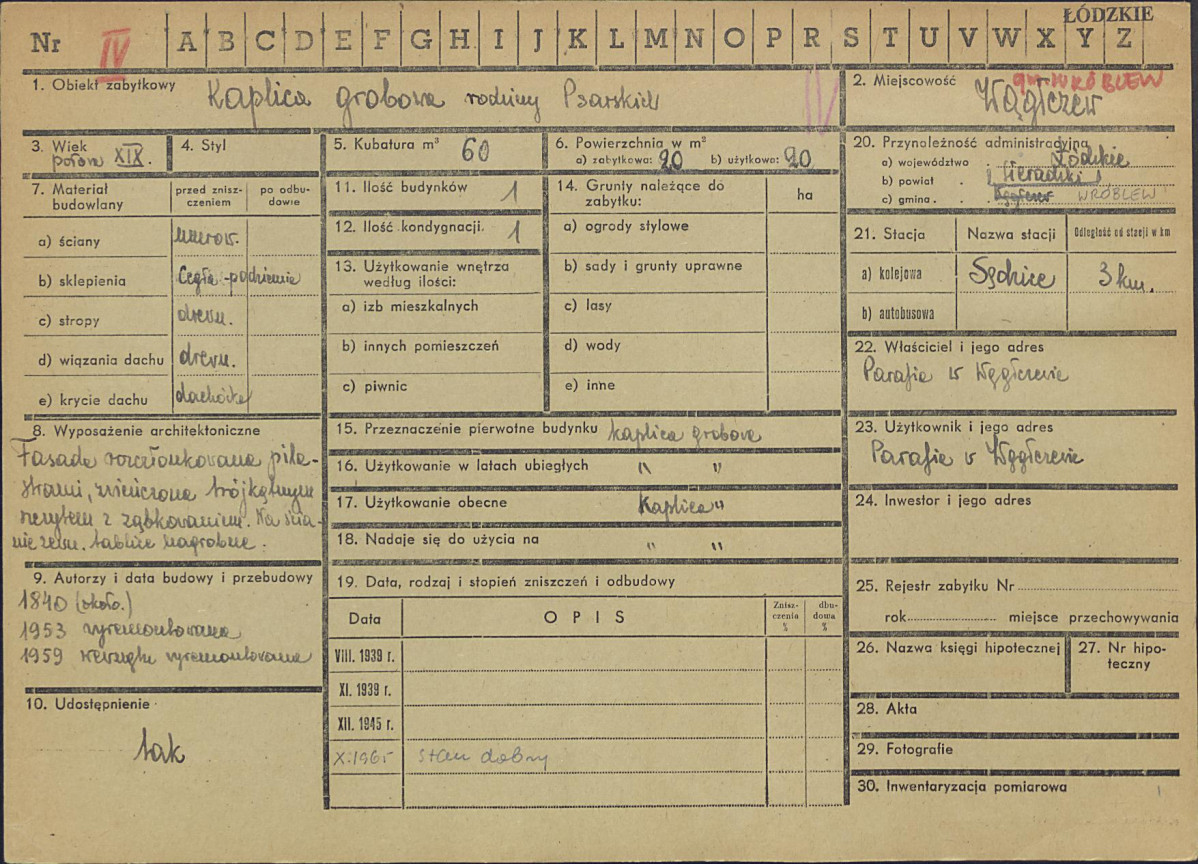 ŁÓDZKIE
Nr IV A B C D E F G H I J K L M N O P R S T U V W X Y Z
1. Obiekt zabytkowy Kaplica grobowa rodziny Psarskich IV
2. Miejscowość gm. WRÓBLEW
Wągłczew
3. Wiek
połowa XIX.
4. Styl
5. Kubatura m³ 60
6. Powierzchnia w m²
a) zabytkowa: 20 b) użytkowa: 20
20. Przynależność administracyjna
a) województwo . Łódzkie
b) powiat . Sieradzki
c) gmina . . Wągłczew WRÓBLEW
7. Materiał budowlany
przed znisz-
czeniem
po odbu-
dowie
a) ściany murow.
b) sklepienia Cegła - podziemie
c) stropy drewn.
d) wiązania dachu drewn.
e) krycie dachu dachówka
11. Ilość budynków 1
12. Ilość kondygnacji 1
13. Użytkowanie wnętrza
według ilości:
a) izb mieszkalnych
b) innych pomieszczeń
c) piwnic
14. Grunty należące do
zabytku:
ha
a) ogrody stylowe
b) sady i grunty uprawne
c) lasy
d) wody
e) inne
21. Stacja Nazwa stacji Odległość od stacji w km
a) kolejowa Sędzice 3 km.
b) autobusowa
22. Właściciel i jego adres
Parafia w Wągłczewie
8. Wyposażenie architektoniczne
Fasada rozczłonkowana pila-
strami, zwieńczona trójkątnym
szczytem z ząbkowaniem. Na ścia-
nie zewn. tablice nagrobne.
15. Przeznaczenie pierwotne budynku kaplica grobowa
16. Użytkowanie w latach ubiegłych " "
17. Użytkowanie obecne Kaplica "
18. Nadaje się do użycia na " "
23. Użytkownik i jego adres
Parafia w Wągłczewie
24. Inwestor i jego adres
9. Autorzy i data budowy i przebudowy
1840 (około.)
1953 wyremontowana
1959 wewnątrz wyremontowana
10. Udostępnienie
tak
19. Data, rodzaj i stopień zniszczeń i odbudowy
Data O P I S Znisz-
czenia
% dbu-
dowa
%
VIII. 1939 r.
XI. 1939 r.
XII. 1945 r.
X. 1965 Stan dobry
25. Rejestr zabytku Nr
rok miejsce przechowywania
26. Nazwa księgi hipotecznej
27. Nr hipo-
teczny
28. Akta
29. Fotografie
30. Inwentaryzacja pomiarowa